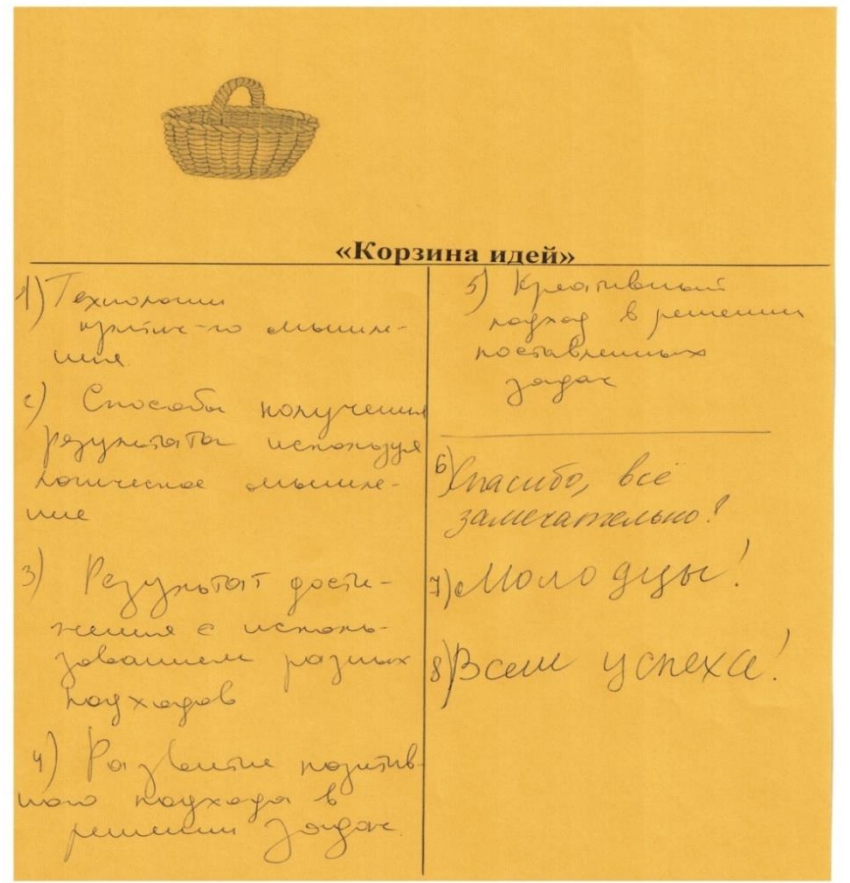 «Корзина идей»
1) Технологии
критич-го мышле-
ния
2) Способы получения
результата используя
логическое мышле-
ние
3) Результат дости-
жения с исполь-
зованием разных
подходов
4) Развитие позитив-
ного подхода в
решении задач
5) Креативный
подход в решении
поставленных
задач
6) Спасибо, всё
замечательно!
7) Молодцы!
8) Всем успеха!